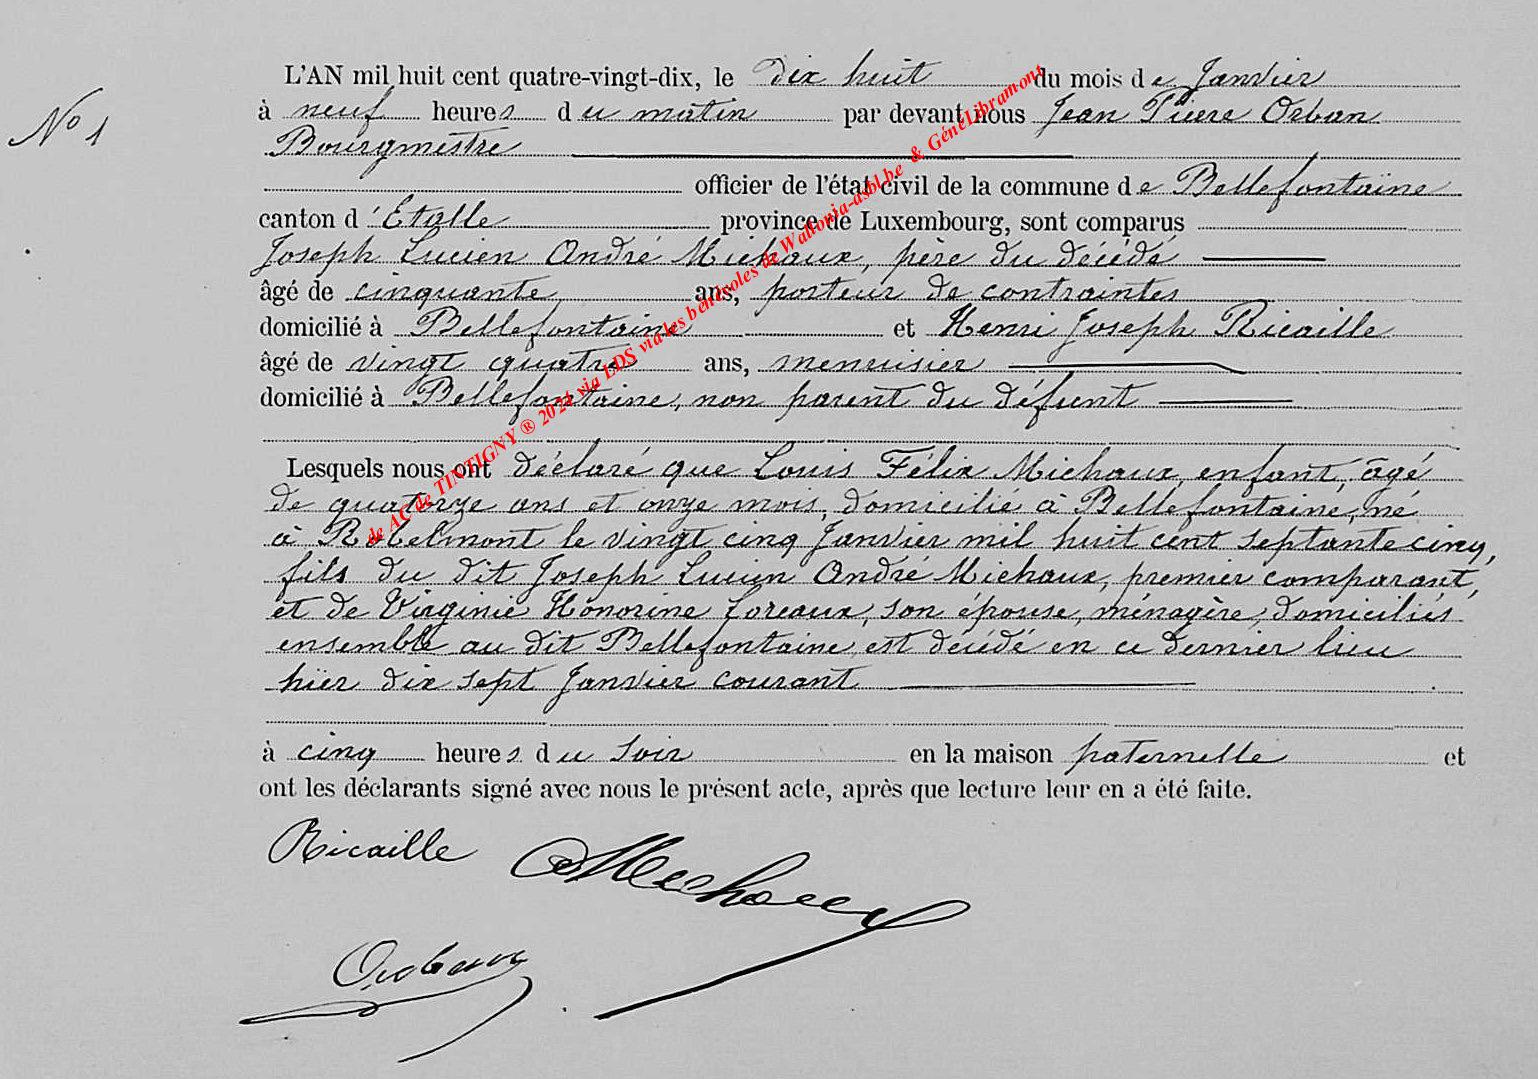 L'AN mil huit cent quatre-vingt-dix, le dix huit du mois de Janvier
No 1
à neuf heures du matin par devant nous Jean Pierre Orban
Bourgmestre
officier de l'état civil de la commune de Bellefontaine
canton d'Etalle province de Luxembourg, sont comparus
Joseph Lucien André Michaux, père du décédé
âgé de cinquante ans, porteur de contraintes
domicilié à Bellefontaine et Henri Joseph Ricaille
âgé de vingt quatre ans, menuisier
domicilié à Bellefontaine, non parent du défunt
Lesquels nous ont déclaré que Louis Félix Michaux, enfant, âgé
de quatorze ans et onze mois, domicilié à Bellefontaine, né
à Robelmont le vingt cinq Janvier mil huit cent septante cinq,
fils du dit Joseph Lucien André Michaux, premier comparant,
et de Virginie Honorine Loreaux, son épouse, ménagère, domiciliés
ensemble au dit Bellefontaine, est décédé en ce dernier lieu
hier dix sept Janvier courant
à cinq heures du soir en la maison paternelle et
ont les déclarants signé avec nous le présent acte, après que lecture leur en a été faite.
Ricaille Michaux
Orban
de AC de TINTIGNY ® 2024 via LDS via les bénévoles de Wallonia-asbl.be & GénéLibramont